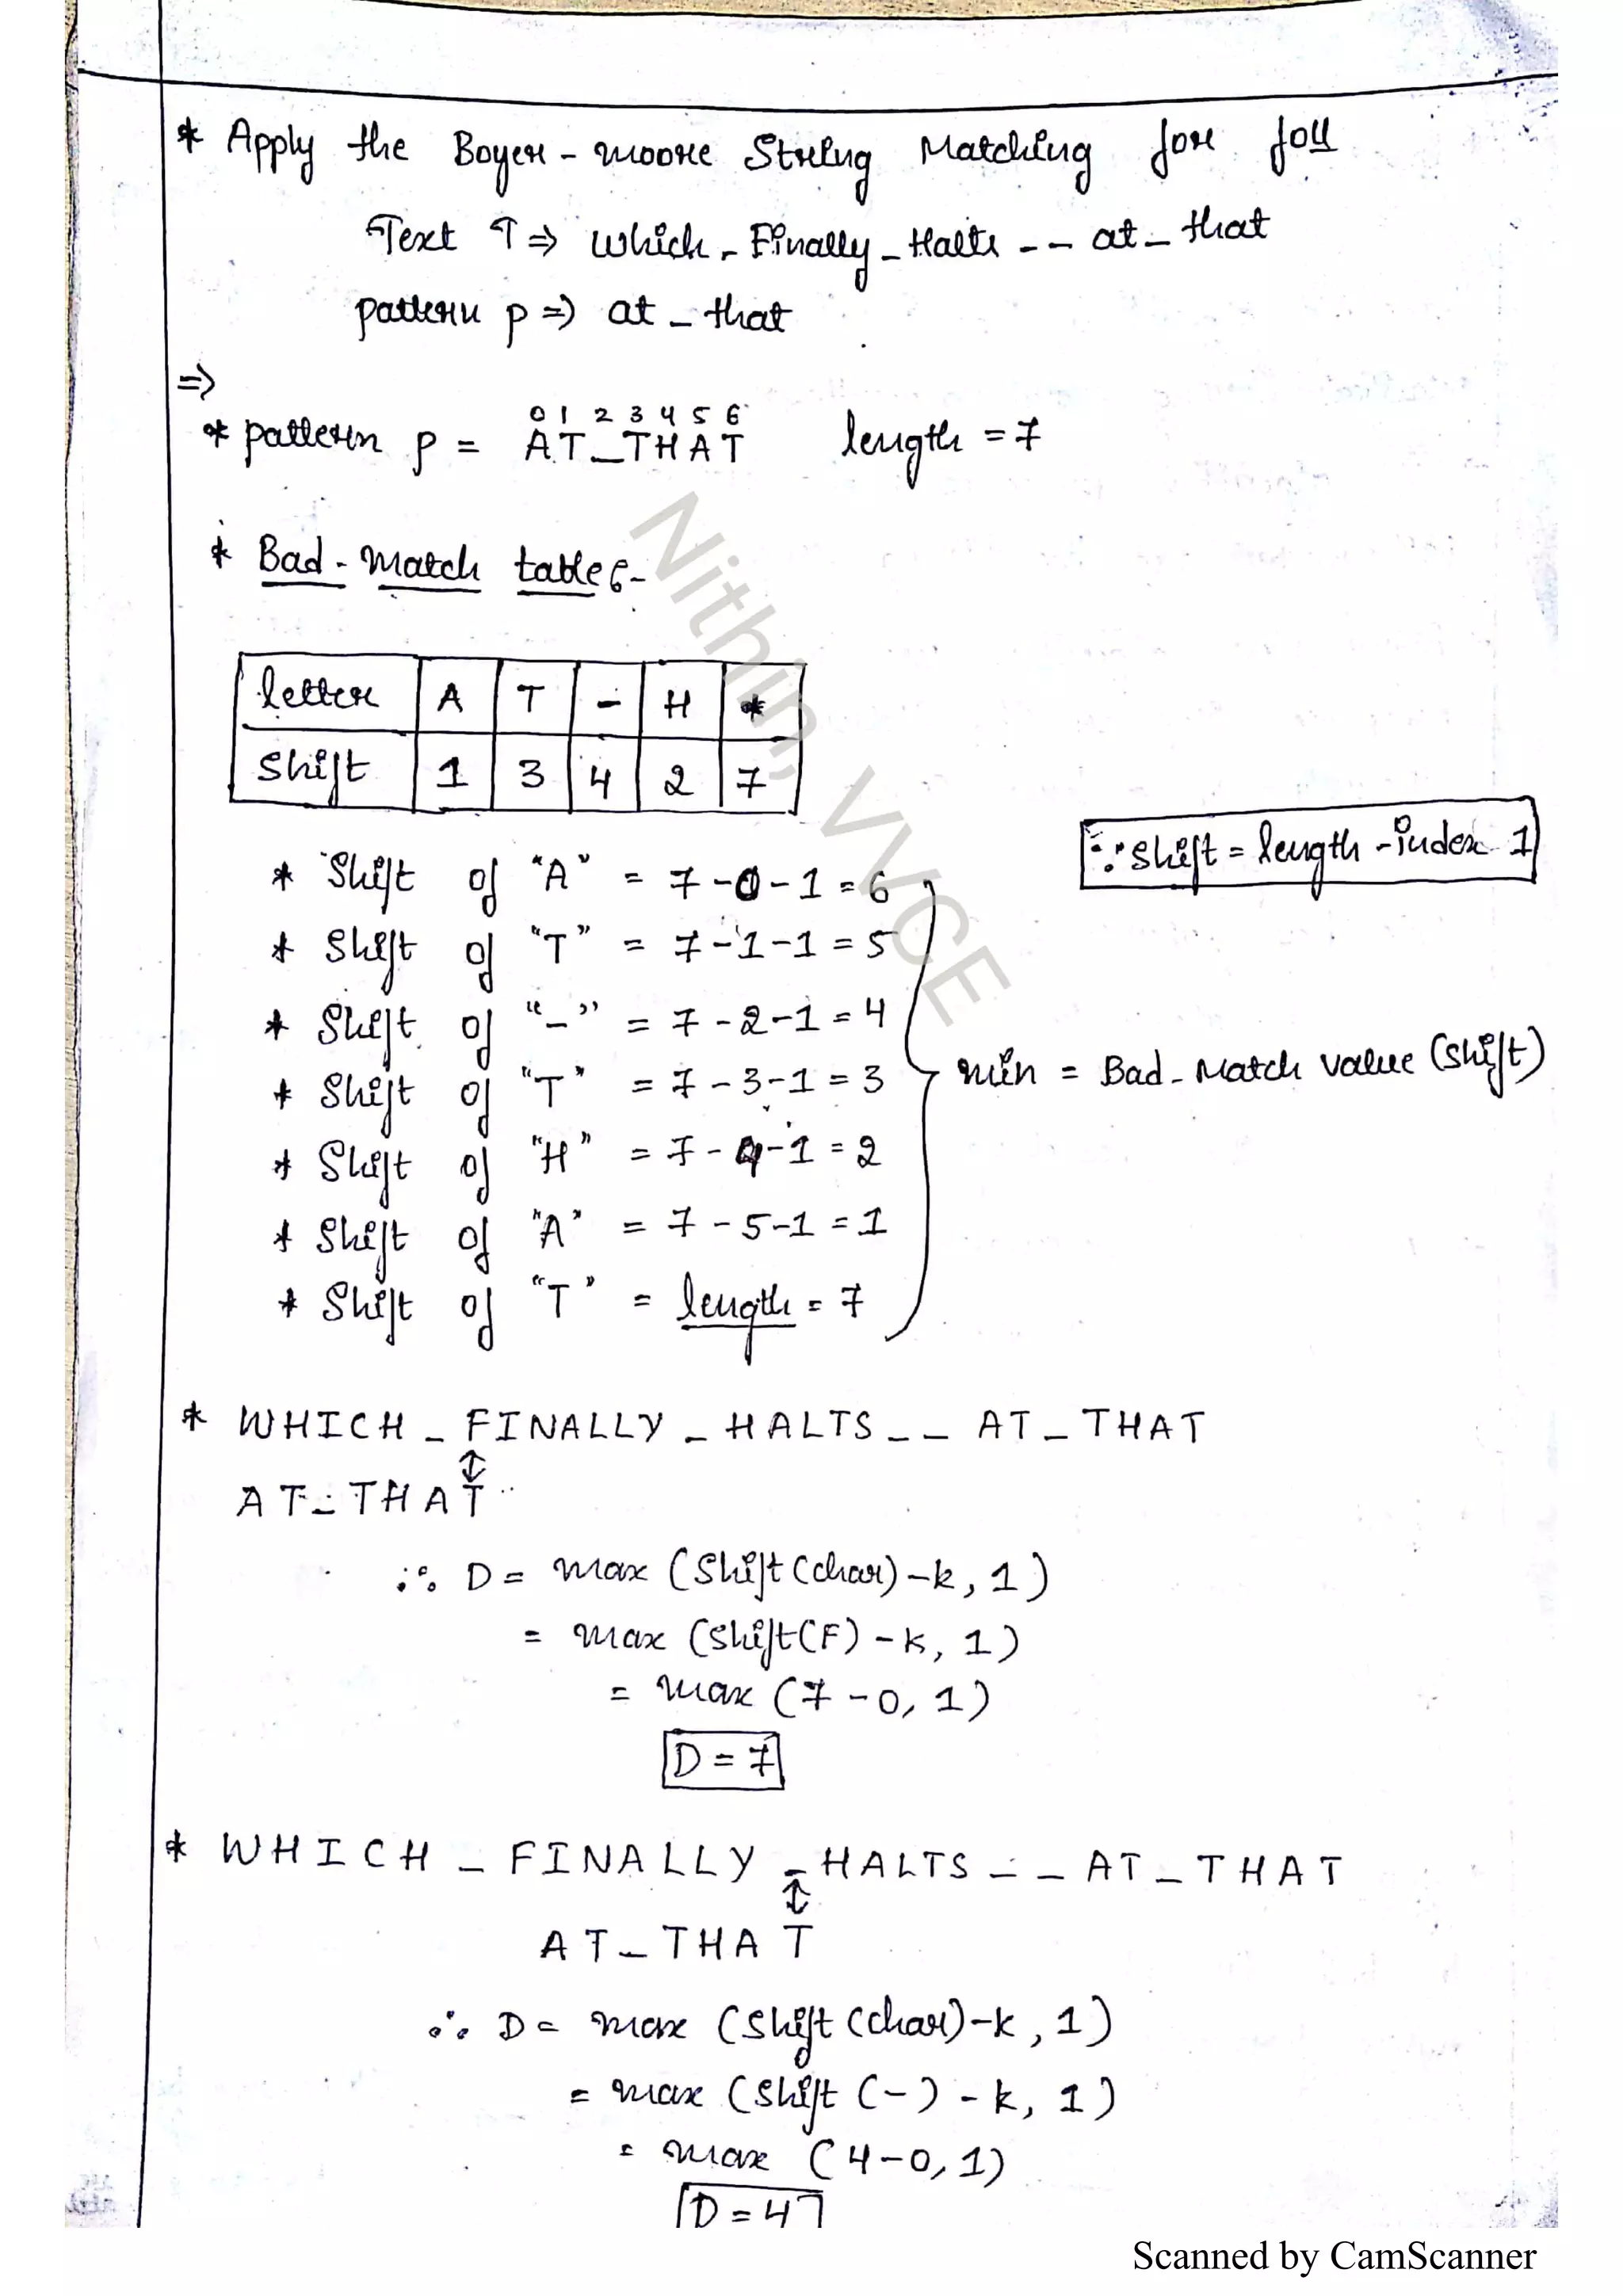 * Apply the Boyer-moore String Matching for foll
Text T ⇒ which_Finally_Halts__at_that
pattern p ⇒ at_that
⇒
0 1 2 3 4 5 6
* pattern p = AT_THAT length = 7
* Bad-Match table:-
letter A T - H *
Shift 1 3 4 2 7
∵ shift = length - index - 1
* Shift of "A" = 7-0-1 = 6
* Shift of "T" = 7-1-1 = 5
* Shift of "_" = 7-2-1 = 4
* Shift of "T" = 7-3-1 = 3
min = Bad-Match value (shift)
* Shift of "H" = 7-4-1 = 2
* Shift of "A" = 7-5-1 = 1
* Shift of "T" = length = 7
* WHICH_FINALLY_HALTS__AT_THAT
AT_THAT
∴ D = max (Shift(char)-k, 1)
= max (shift(F)-k, 1)
= max (7-0, 1)
D = 7
* WHICH_FINALLY_HALTS__AT_THAT
AT_THAT
∴ D = max (shift(char)-k, 1)
= max (shift (-)-k, 1)
= max (4-0, 1)
D = 4
Nithin, VVCE
Scanned by CamScanner